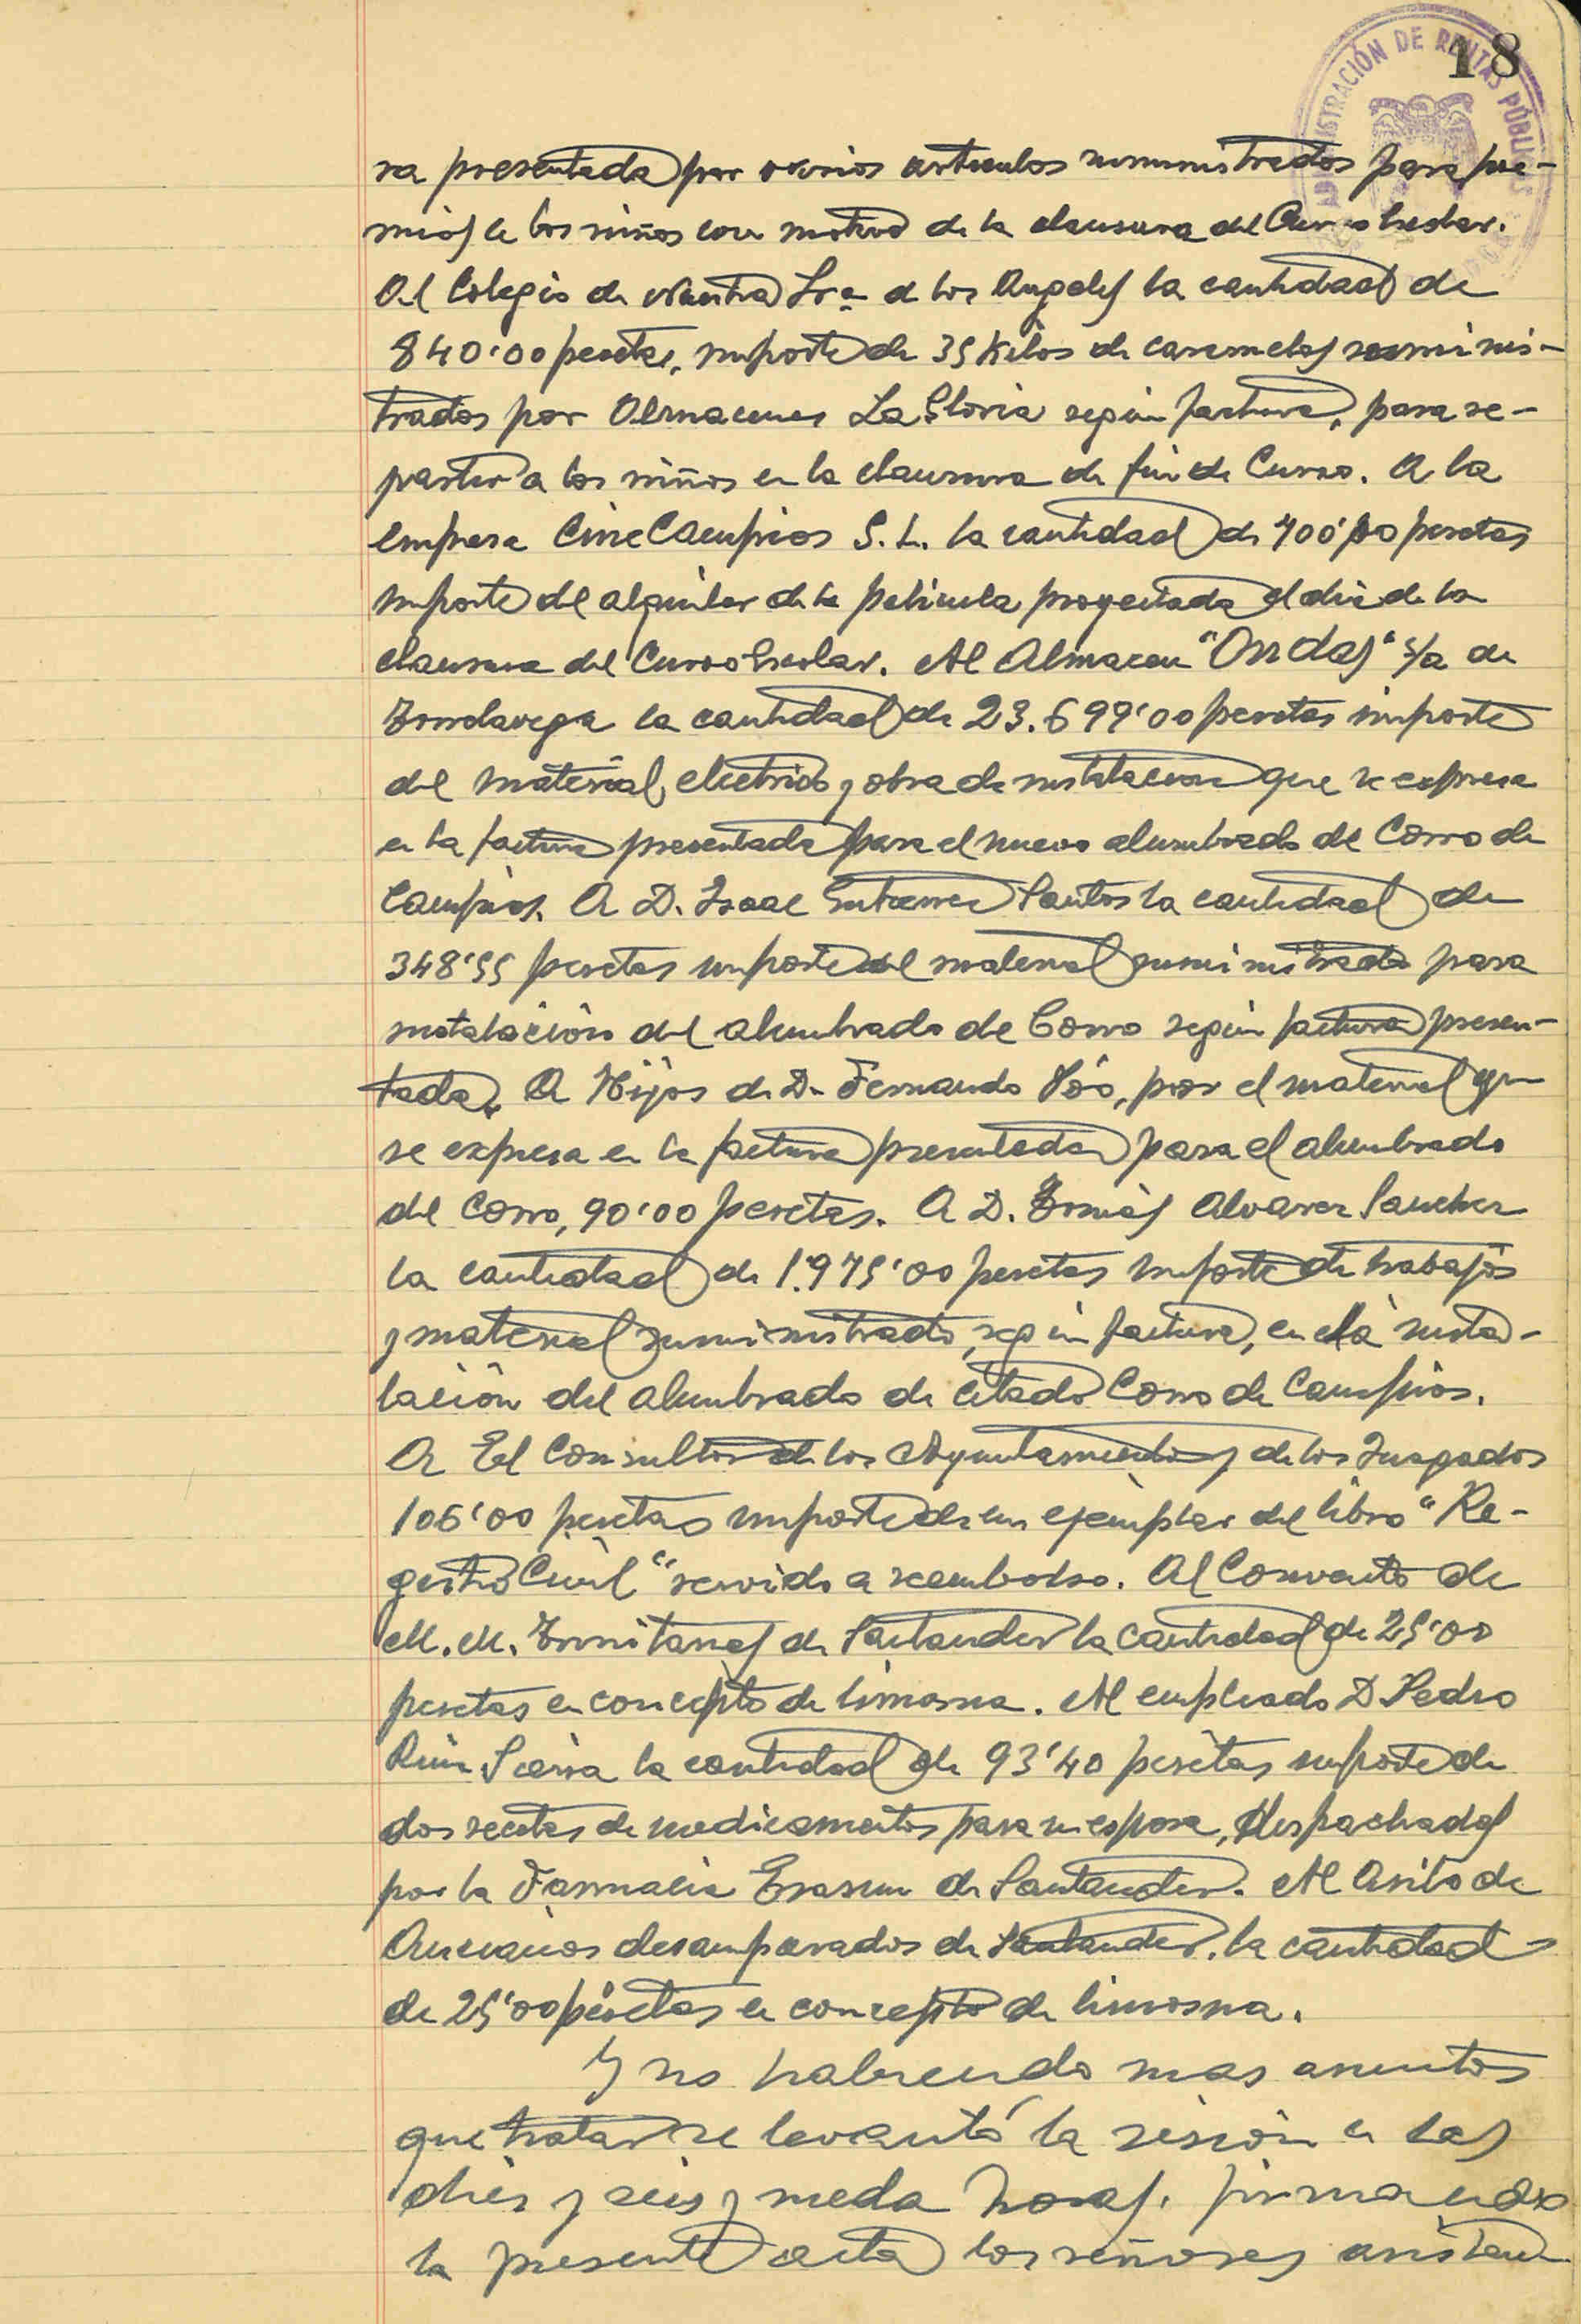 18
ADMINISTRACIÓN DE RENTAS PÚBLICAS
ra presentada por varios articulos suministrados para pre-
mios de los niños con motivo de la clausura del Curso Escolar.
Al Colegio de Nuestra Srª de los Angeles la cantidad de
840'00 pesetas, importe de 35 kilos de caramelos suminis-
trados por Almacenes La Gloria según factura, para re-
partir a los niños en la clausura de fin de Curso. A la
empresa Cine Campios S.L. la cantidad de 700'00 pesetas
importe del alquiler de la pelicula proyectada el dia de la
clausura del Curso Escolar. Al Almacen "Ondas" S/a de
Torrelavega la cantidad de 23.699'00 pesetas importe
del material electrico y obra de instalacion que se expresa
en la factura presentada para el nuevo alumbrado del Corro de
Campios. A D. Isaac Gutierrez Santos la cantidad de
348'55 pesetas importe del material suministrado para
instalación del alumbrado de Corro según factura presen-
tada. A Hijos de D. Fernando Póo, por el material que
se expresa en la factura presentada para el alumbrado
del Corro, 90'00 pesetas. A D. Tomás Alvarez Sanchez
la cantidad de 1.975'00 pesetas importe de trabajos
y material suministrado, según factura, en la insta-
lación del alumbrado de citado Corro de Campios.
A El Consultor de los Ayuntamientos y de los Juzgados
106'00 pesetas importe de un ejemplar del libro "Re-
gistro Civil" servido a reembolso. Al Convento de
M.M. Trinitarias de Santander la cantidad de 25'00
pesetas en concepto de limosna. Al empleado D. Pedro
Ruiz la cantidad de 93'40 pesetas importe de
dos recetas de medicamentos para su esposa, despachadas
por la Farmacia Erasun de Santander. Al Asilo de
Ancianos desamparados de Santander, la cantidad
de 25'00 pesetas en concepto de limosna.
Y no habiendo mas asuntos
que tratar se levantó la sesión a las
diez y seis y media horas, firmando
la presente acta los señores asisten